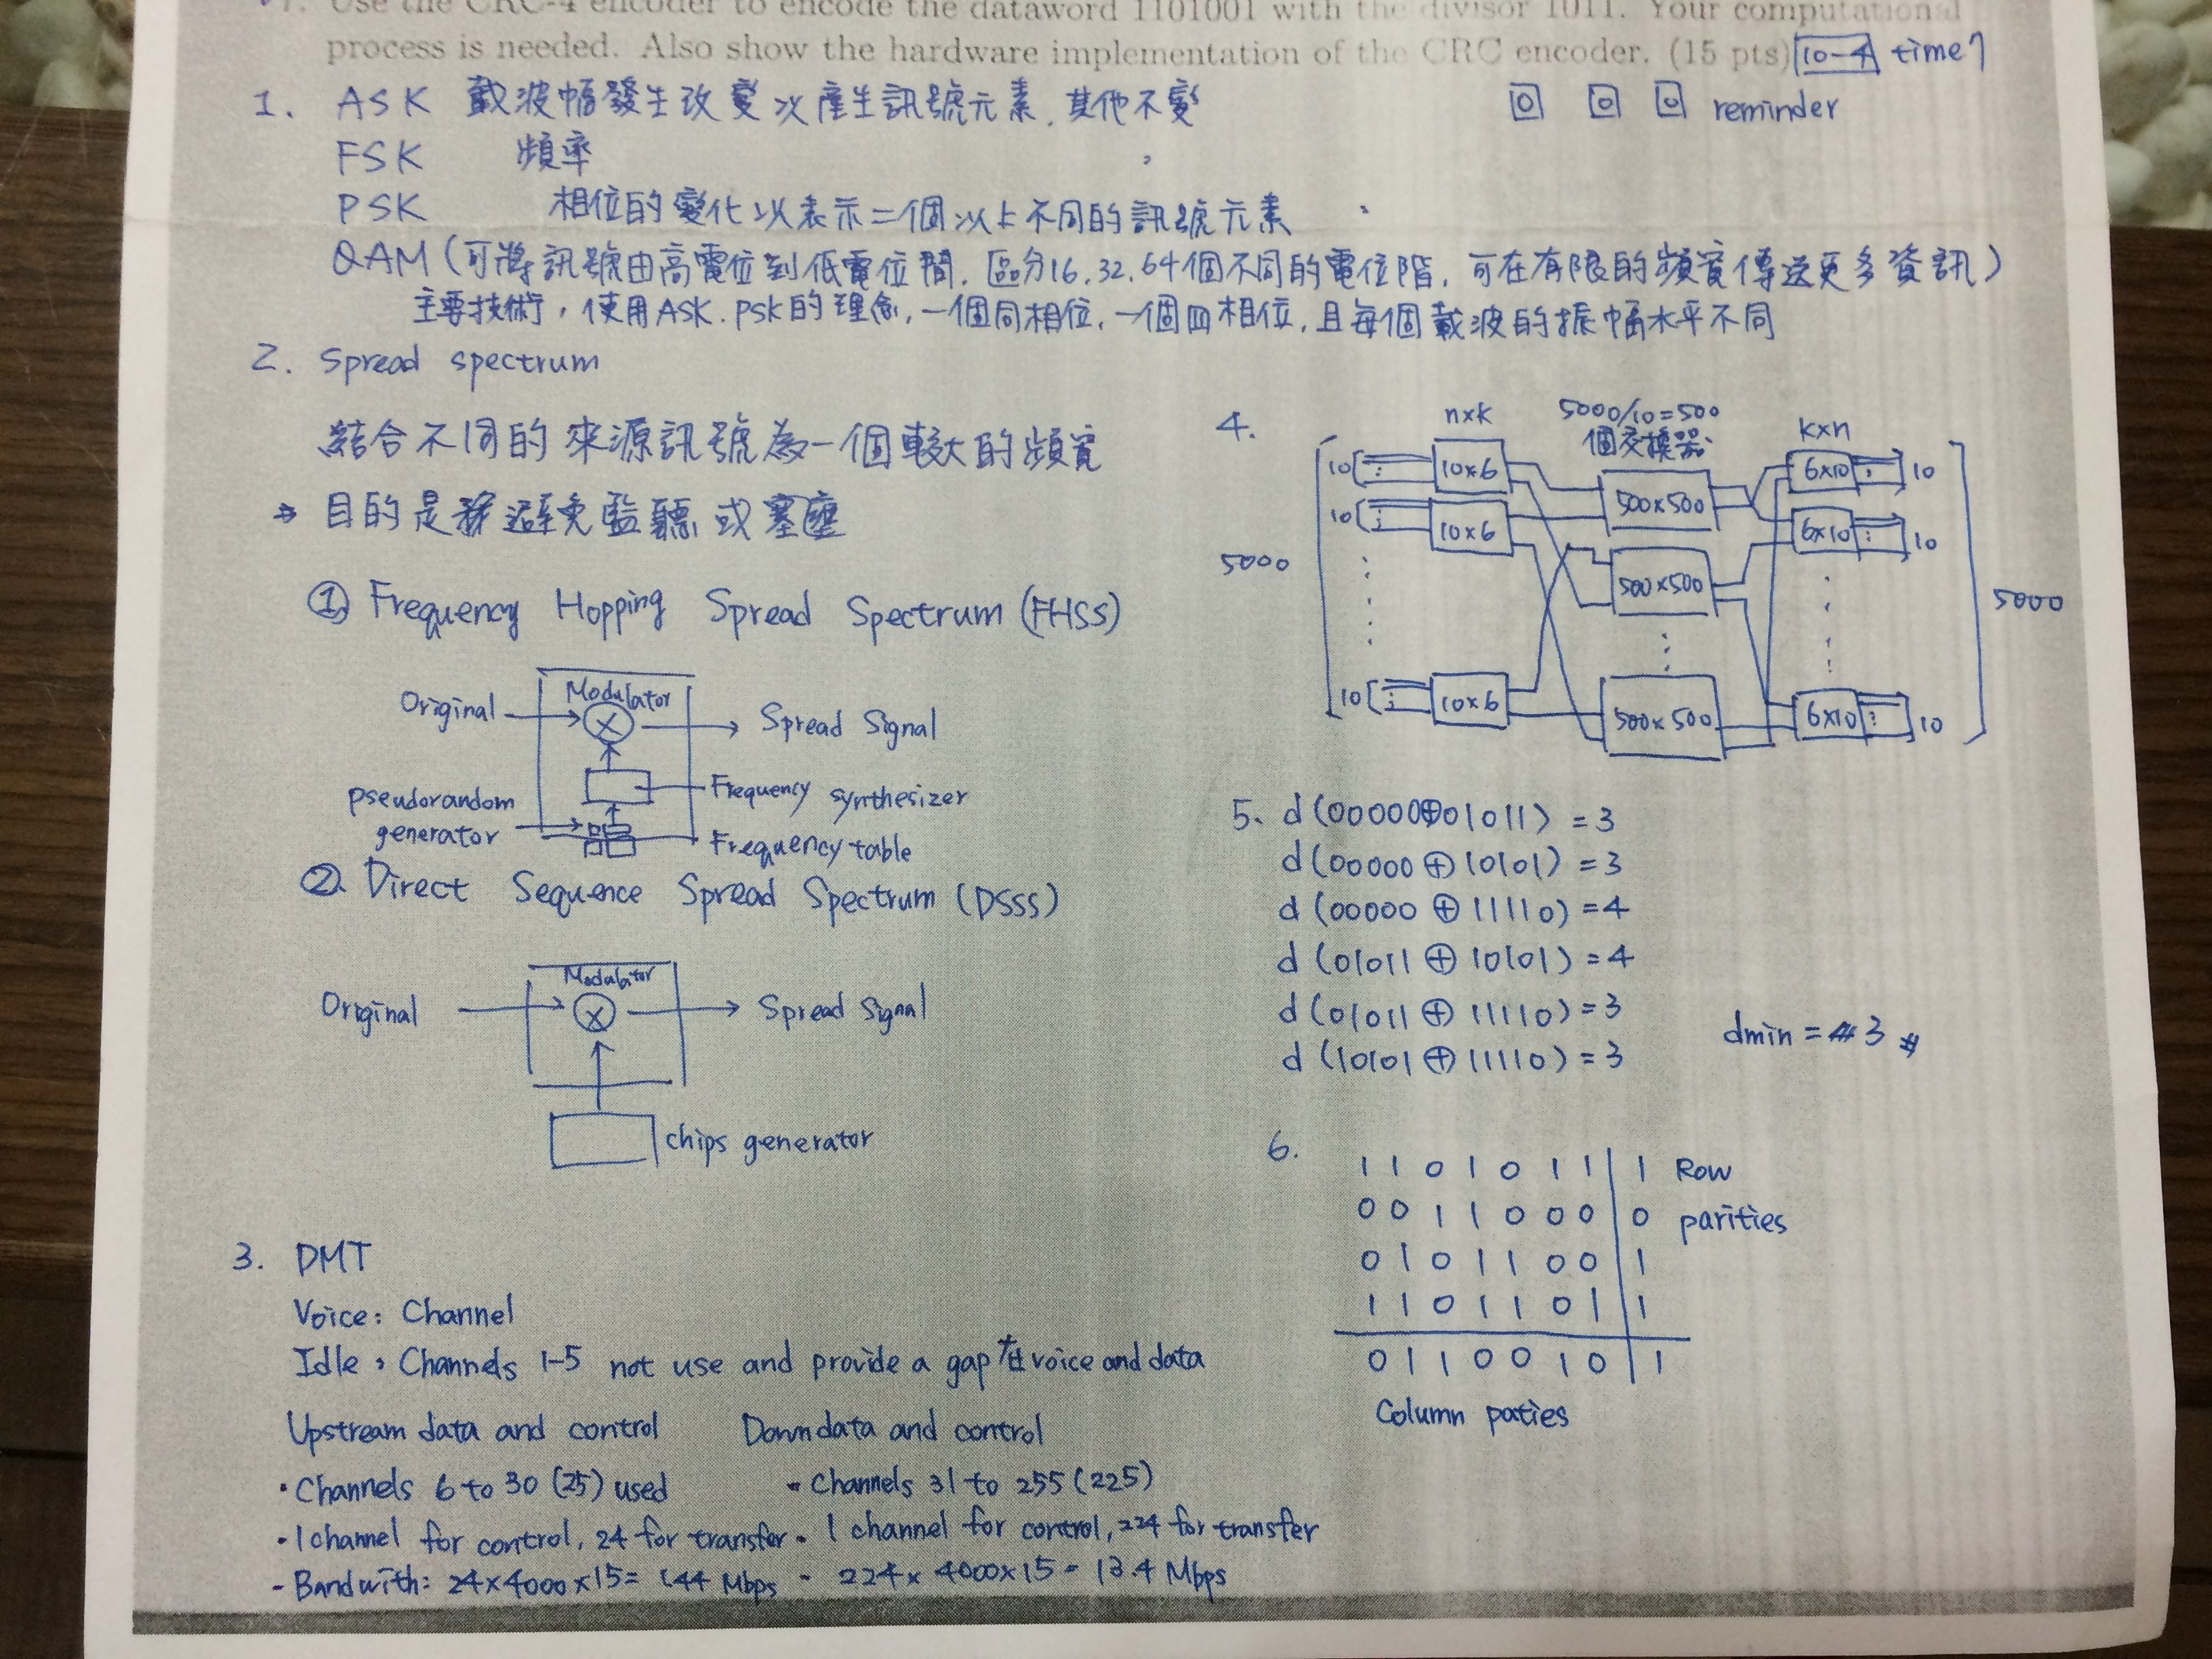 7. Use the CRC-4 encoder to encode the dataword 1101001 with the divisor 1011. Your computational
process is needed. Also show the hardware implementation of the CRC encoder. (15 pts) 10-4 time
0 0 0 reminder
1. ASK 載波幅發生改變次產生訊號元素, 其他不變
FSK 頻率
PSK 相位的變化以表示二個以上不同的訊號元素
QAM (可將訊號由高電位到低電位間, 區分16, 32, 64個不同的電位階, 可在有限的頻寬傳送更多資訊)
主要技術, 使用ASK. PSK的理念, 一個同相位, 一個四相位, 且每個載波的振幅水平不同
2. Spread spectrum
結合不同的來源訊號為一個較大的頻寬
目的是 避免監聽或塞壅
① Frequency Hopping Spread Spectrum (FHSS)
Modulator
Original
Spread Signal
pseudorandom
generator
Frequency synthesizer
Frequency table
② Direct Sequence Spread Spectrum (DSSS)
Modulator
Original
Spread Signal
chips generator
3. DMT
Voice: Channel
Idle, Channels 1-5 not use and provide a gap 在 voice and data
Upstream data and control
· Channels 6 to 30 (25) used
· 1 channel for control, 24 for transfer
- Bandwith: 24×4000×15= 1.44 Mbps
Down data and control
- Channels 31 to 255 (225)
- 1 channel for control, 224 for transfer
- 224× 4000×15 = 13.4 Mbps
4.
n×k
5000/10=500
個交換器
k×n
10 10×6 500×500 6×10 10
10 10×6 500×500 6×10 10
5000 5000
10 10×6 500×500 6×10 10
5. d(00000⊕01011) = 3
d(00000 ⊕ 10101) = 3
d(00000 ⊕ 11110) = 4
d(01011 ⊕ 10101) = 4
d(01011 ⊕ 11110) = 3
d(10101 ⊕ 11110) = 3
dmin = 3 #
6.
1 1 0 1 0 1 1 | 1 Row
0 0 1 1 0 0 0 | 0 parities
0 1 0 1 1 0 0 | 1
1 1 0 1 1 0 1 | 1
0 1 1 0 0 1 0 | 1
Column paties